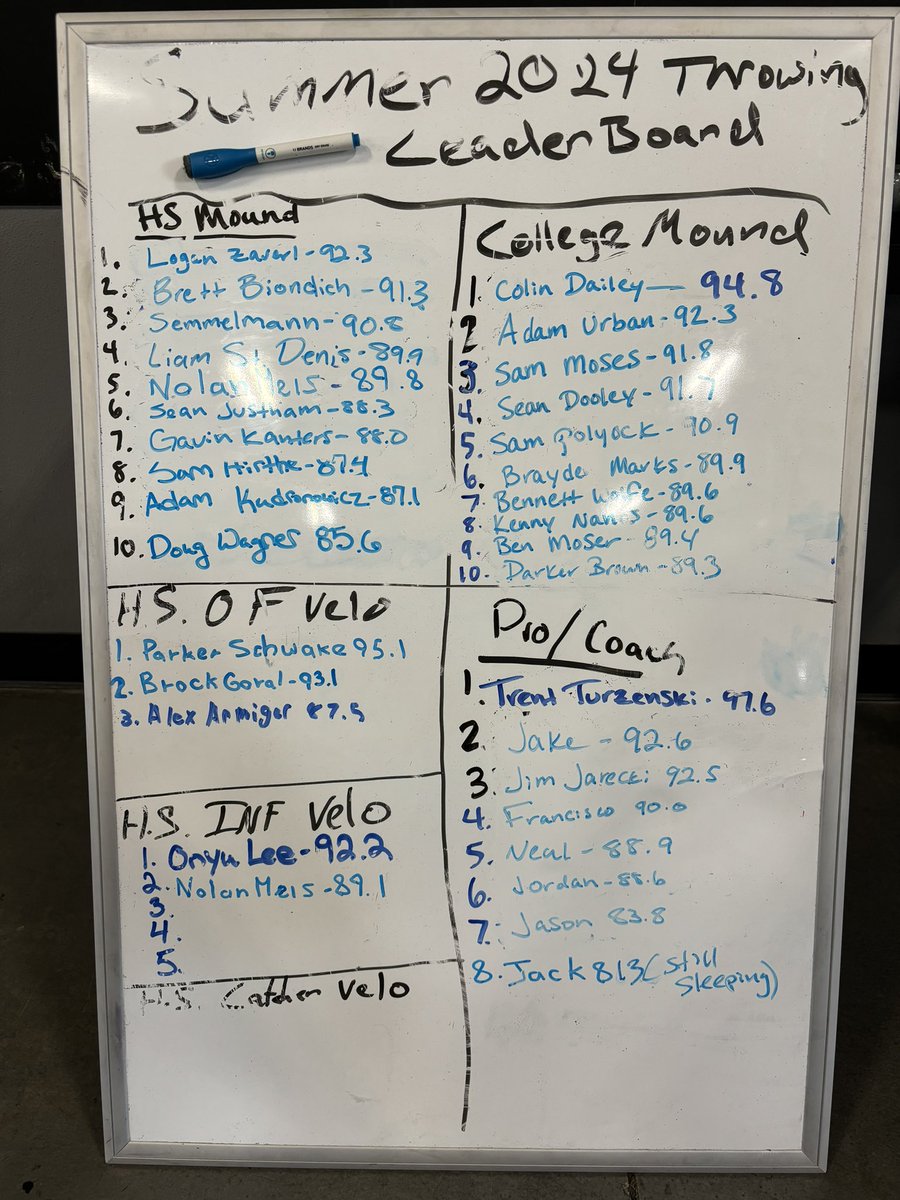 Summer 2024 Throwing
Leader Board
HS Mound
1. Logan Zavarl - 92.3
2. Brett Biondich - 91.3
3. Semmelmann - 90.8
4. Liam St Denis - 89.9
5. Nolan Meis - 89.8
6. Sean Justham - 88.3
7. Gavin Kanters - 88.0
8. Sam Hirthe - 87.4
9. Adam - 87.1
10. Doug Wagner 85.6
College Mound
1. Colin Dailey — 94.8
2 Adam Urban - 92.3
3. Sam Moses - 91.8
4. Sean Dooley - 91.7
5. Sam Polyock - 90.9
6. Brayde Marks - 89.9
7. Bennett Wolfe - 89.6
8. Kenny - 89.6
9. Ben Moser - 89.4
10. Parker Brown - 89.3
H.S. OF Velo
1. Parker Schwake 95.1
2. Brock Goral - 93.1
3. Alex Armiger 87.5
H.S. INF Velo
1. Onyu Lee - 92.2
2. Nolan Meis - 89.1
3.
4.
5.
H.S. Catcher Velo
Pro/Coach
1. Trent Turzenski - 97.6
2. Jake - 92.6
3. Jim Jarecki 92.5
4. Francisco 90.0
5. Neal - 88.9
6. Jordan - 88.6
7. Jason 83.8
8. Jack 813 (Still
Sleeping)